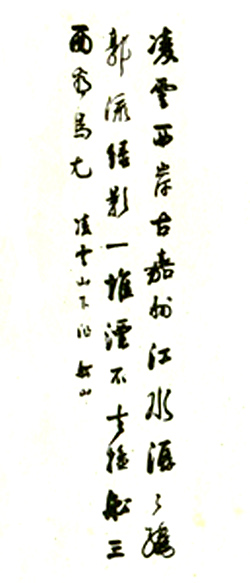 凌雲西岸古嘉州江水潺々繞
郭流綠影一堆漂不去推船三
面看烏尤 凌雲山下泊 船山